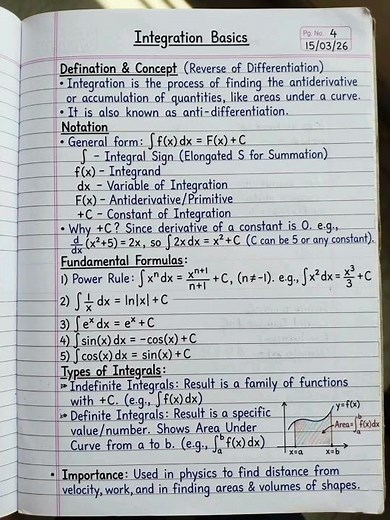 Integration Basics
Pg. No. 4
15/03/26
Defination & Concept (Reverse of Differentiation)
• Integration is the process of finding the antiderivative
or accumulation of quantities, like areas under a curve.
• It is also known as anti-differentiation.
Notation
• General form: ∫f(x)dx = F(x)+C
∫ – Integral Sign (Elongated S for Summation)
f(x) – Integrand
dx – Variable of Integration
F(x) – Antiderivative/Primitive
+C – Constant of Integration
• Why +C? Since derivative of a constant is 0. e.g.,
d/dx(x²+5) = 2x, so ∫2xdx = x²+C (C can be 5 or any constant).
Fundamental Formulas:
1) Power Rule: ∫xⁿdx = xⁿ⁺¹/n+1 +C, (n≠-1). e.g., ∫x²dx = x³/3 +C
2) ∫1/x dx = ln|x|+C
3) ∫eˣdx = eˣ+C
4) ∫sin(x)dx = -cos(x)+C
5) ∫cos(x)dx = sin(x)+C
Types of Integrals:
➳ Indefinite Integrals: Result is a family of functions
with +C. (e.g., ∫f(x)dx)
➳ Definite Integrals: Result is a specific
value/number. Shows Area Under
Curve from a to b. (e.g., ∫ₐᵇf(x)dx)
y=f(x)
Area=∫ₐᵇf(x)dx
x=a x=b
• Importance: Used in physics to find distance from
velocity, work, and in finding areas & volumes of shapes.